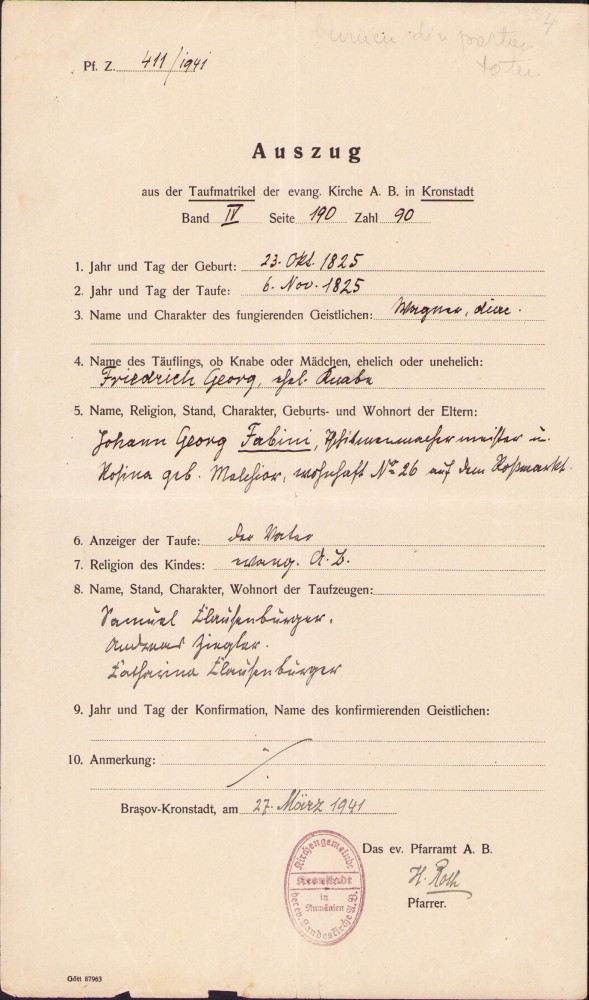 4
bunicu din partea
tatei
Pf. Z. 411/1941
Auszug
aus der Taufmatrikel der evang. Kirche A. B. in Kronstadt
Band IV Seite 190 Zahl 90
1. Jahr und Tag der Geburt: 23. Okt. 1825
2. Jahr und Tag der Taufe: 6. Nov. 1825
3. Name und Charakter des fungierenden Geistlichen: Wagner, diac.
4. Name des Täuflings, ob Knabe oder Mädchen, ehelich oder unehelich:
Friedrich Georg, ehel. Knabe
5. Name, Religion, Stand, Charakter, Geburts- und Wohnort der Eltern:
Johann Georg Fabini, Tschismenmachermeister u.
Rosina geb. Melchior, wohnhaft No 26 auf dem Roßmarkt.
6. Anzeiger der Taufe: der Vater
7. Religion des Kindes: evang. A. B.
8. Name, Stand, Charakter, Wohnort der Taufzeugen:
Samuel Clausenburger.
Andreas Ziegler.
Catharina Clausenburger
9. Jahr und Tag der Konfirmation, Name des konfirmierenden Geistlichen:
10. Anmerkung:
Brașov-Kronstadt, am 27. März 1941
Das ev. Pfarramt A. B.
H. Roth
Pfarrer.
Kirchengemeinde
Kronstadt
in
Rumänien
der ev. Landeskirche A.B.
Gött 87963